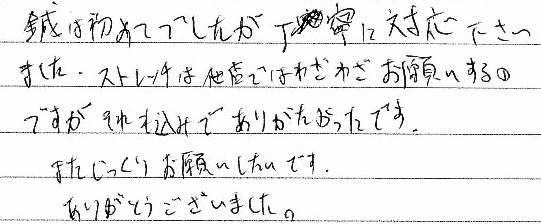 鍼は初めてでしたが 丁寧に対応下さい
ました。ストレッチは他店ではわざわざお願いするの
ですが それも込みで ありがたかったです。
またじっくり お願いしたいです。
ありがとうございました。